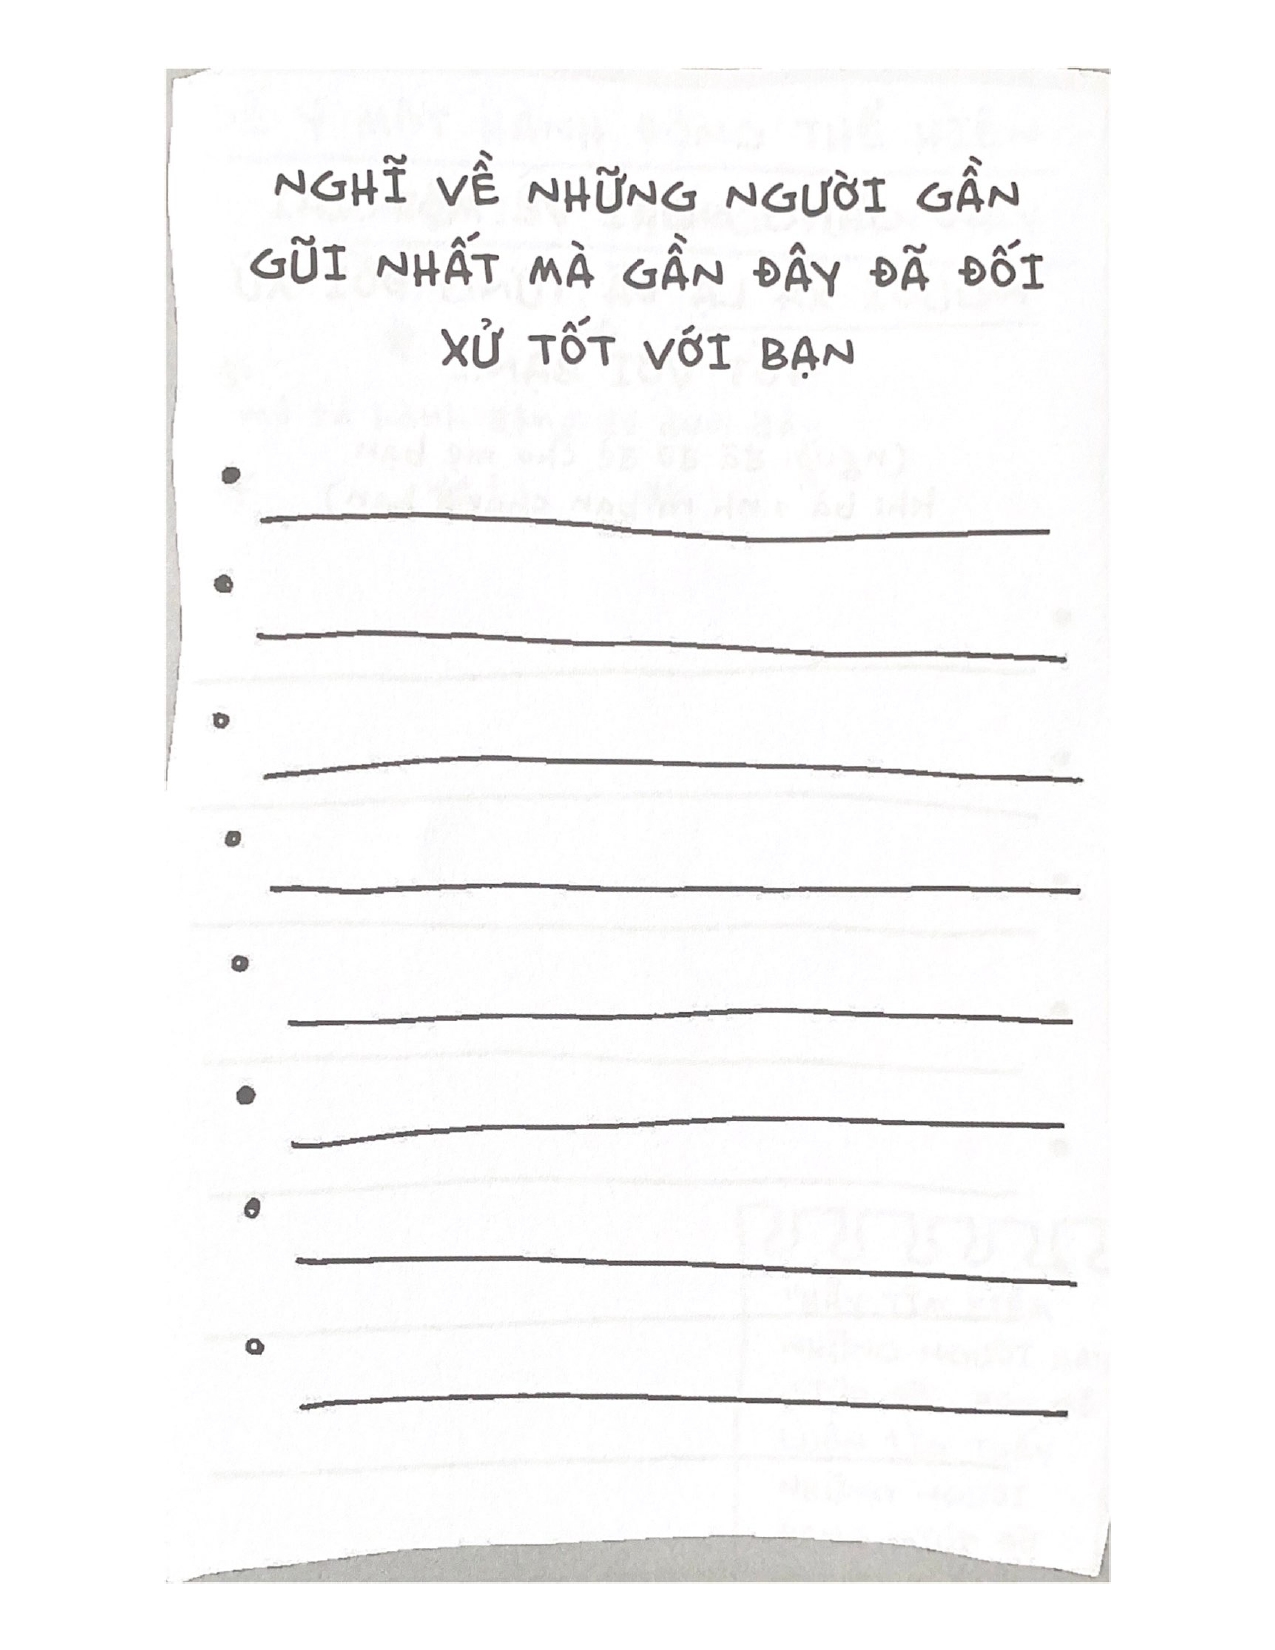 NGHĨ VỀ NHỮNG NGƯỜI GẦN
GŨI NHẤT MÀ GẦN ĐÂY ĐÃ ĐỐI
XỬ TỐT VỚI BẠN